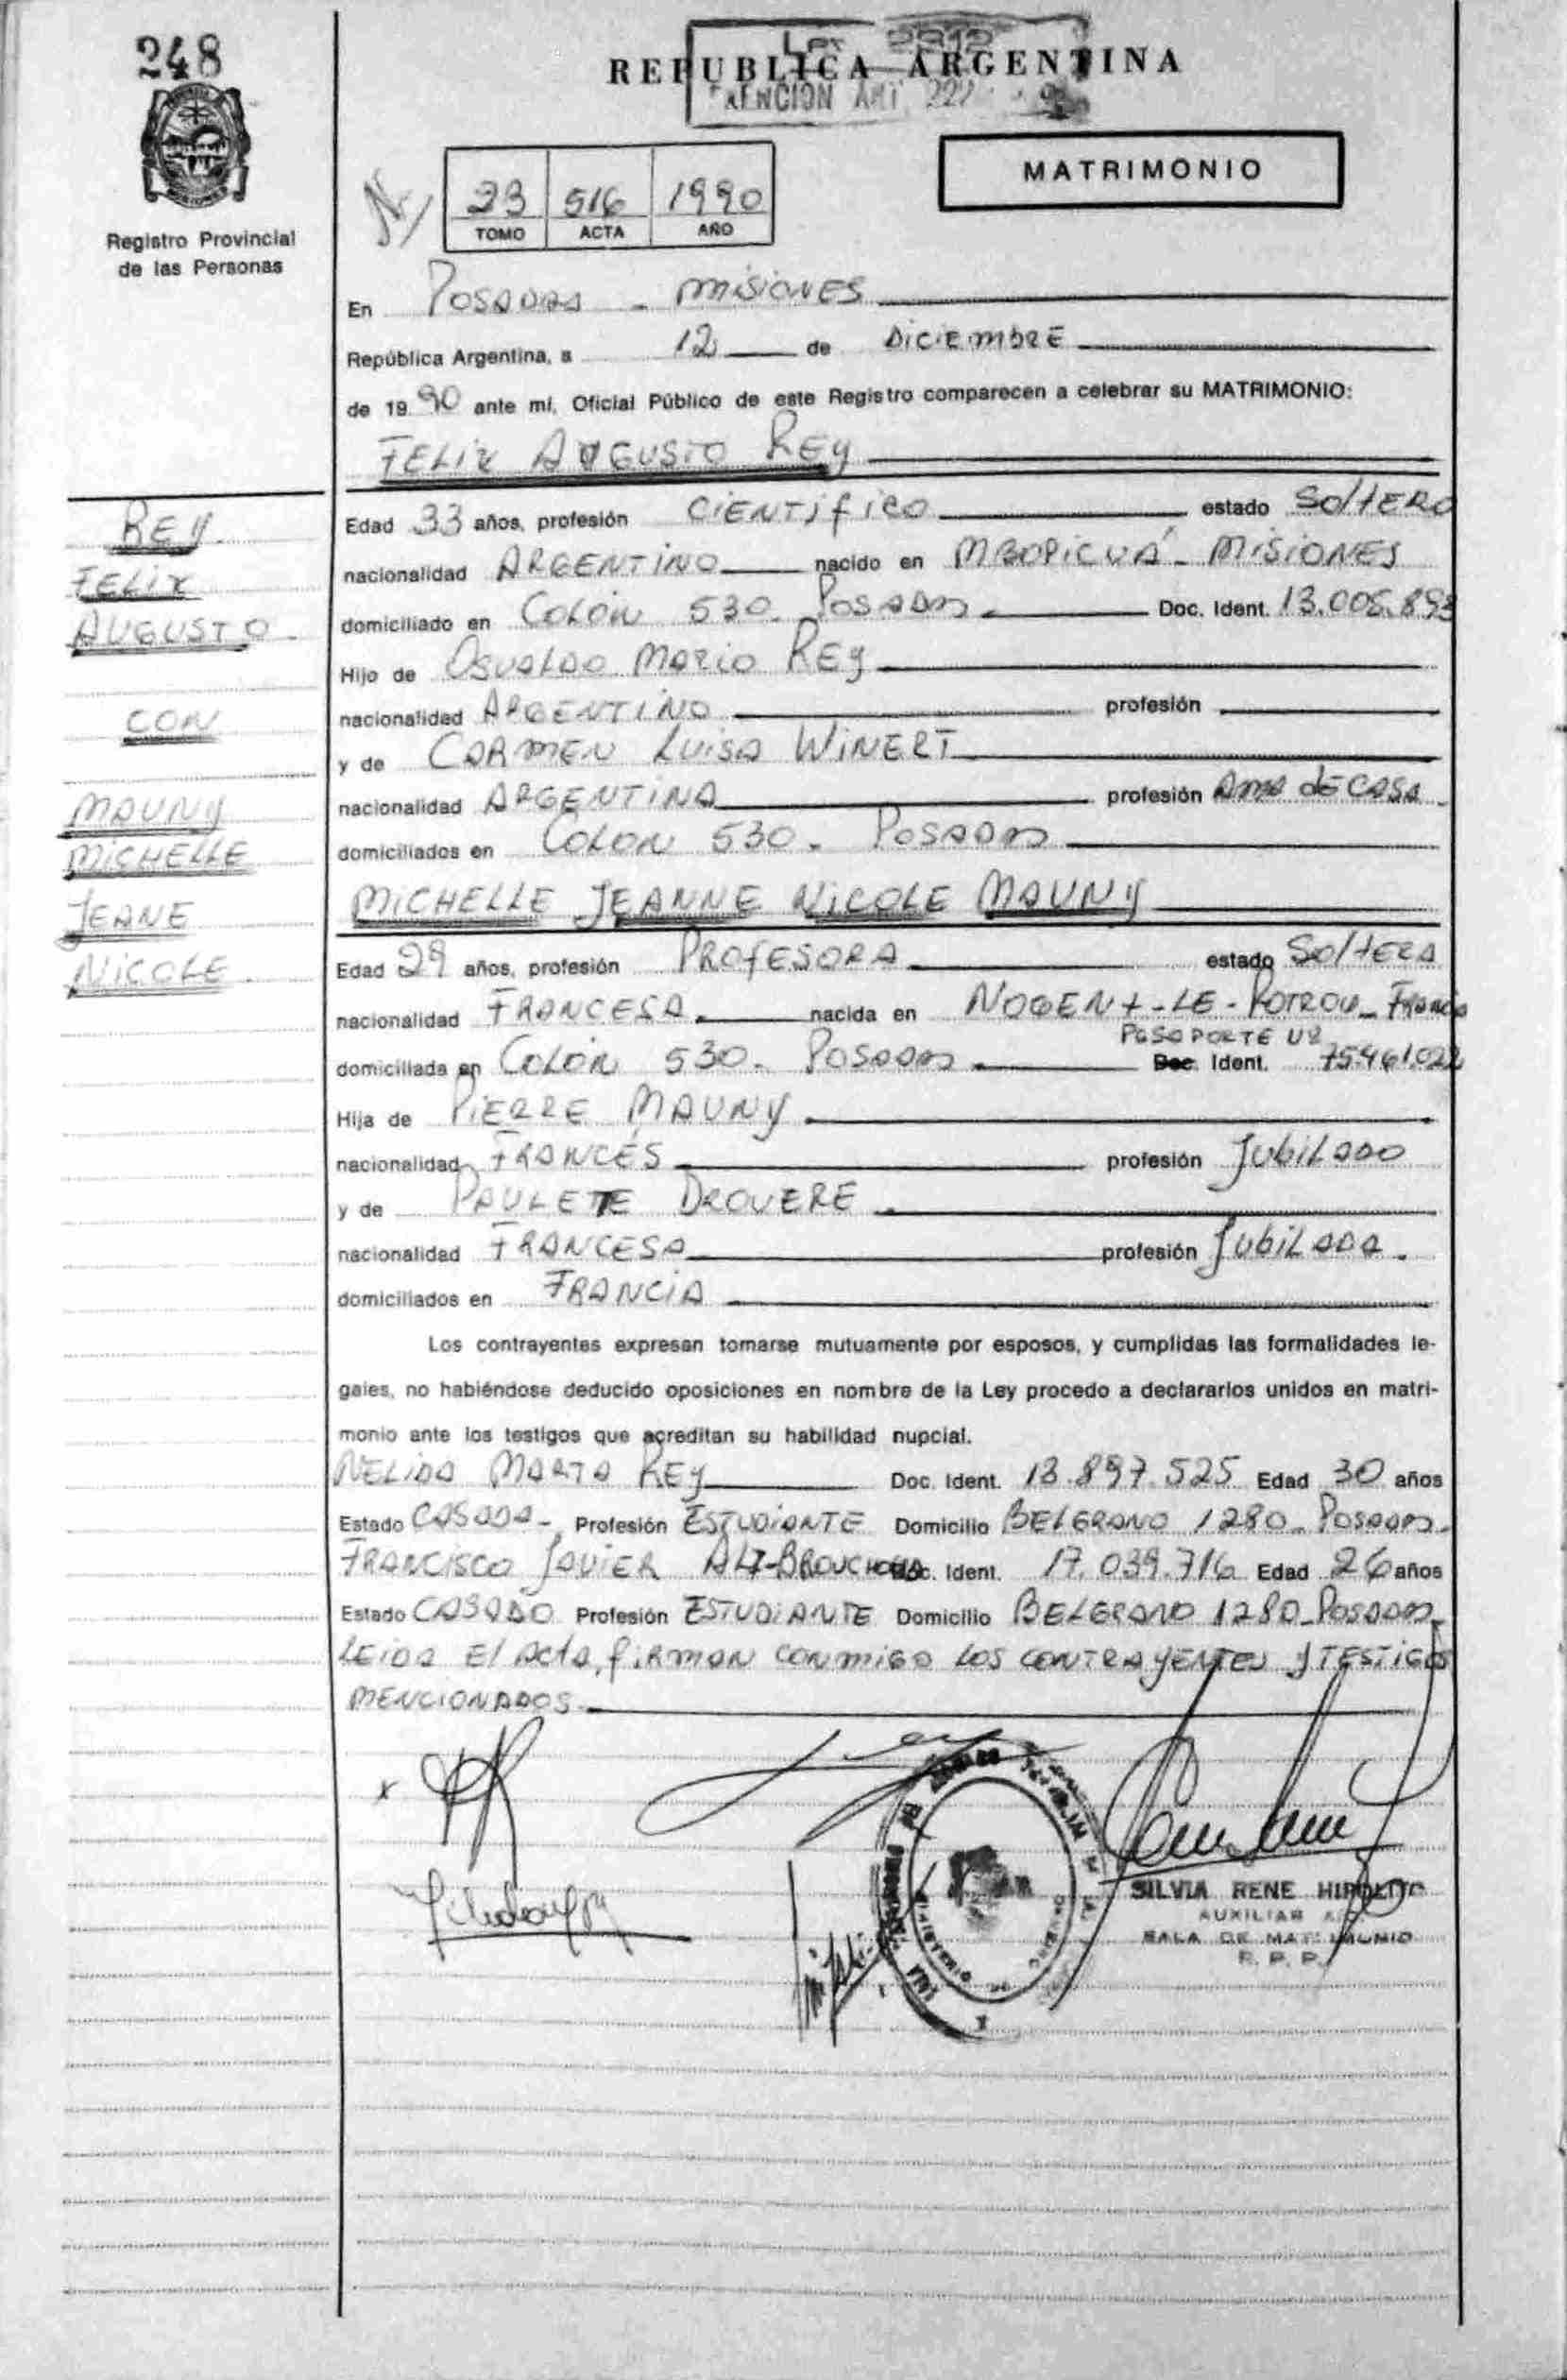 248
REPUBLICA ARGENTINA
Ley 2912
ART 222
MATRIMONIO
23 516 1990
TOMO ACTA AÑO
Registro Provincial
de las Personas
En POSADAS - MISIONES
República Argentina, a 12 de DICIEMBRE
de 1990 ante mí, Oficial Público de este Registro comparecen a celebrar su MATRIMONIO:
FELIX AUGUSTO REY
REY
FELIX
AUGUSTO
CON
MAUNY
MICHELLE
JEANE
NICOLE
Edad 33 años, profesión CIENTIFICO estado SOLTERO
nacionalidad ARGENTINO nacido en MBOPICUÁ - MISIONES
domiciliado en COLÓN 530 - POSADAS Doc. Ident. 13.005.893
Hijo de OSVALDO MARIO REY
nacionalidad ARGENTINO profesión
y de CARMEN LUISA WINERT
nacionalidad ARGENTINA profesión AMA DE CASA
domiciliados en COLON 530 - POSADAS
MICHELLE JEANNE NICOLE MAUNY
Edad 29 años, profesión PROFESORA estado SOLTERA
nacionalidad FRANCESA nacida en NOGENT-LE-ROTROU - Francia
PASAPORTE Nº
domiciliada en COLÓN 530 - POSADAS Doc. Ident. 75.461.022
Hija de PIERRE MAUNY
nacionalidad FRANCÉS profesión JUBILADO
y de PAULETE DROUERE
nacionalidad FRANCESA profesión JUBILADA
domiciliados en FRANCIA
Los contrayentes expresan tomarse mutuamente por esposos, y cumplidas las formalidades le-
gales, no habiéndose deducido oposiciones en nombre de la Ley procedo a declararlos unidos en matri-
monio ante los testigos que acreditan su habilidad nupcial.
NELIDA MARTA REY Doc. Ident. 13.897.525 Edad 30 años
Estado CASADA - Profesión ESTUDIANTE Domicilio BELGRANO 1280 - POSADAS
FRANCISCO JAVIER Doc. Ident. 17.039.716 Edad 26 años
Estado CASADO Profesión ESTUDIANTE Domicilio BELGRANO 1280 - POSADAS
LEIDA EL ACTA, FIRMAN CONMIGO LOS CONTRAYENTES Y TESTIGOS
MENCIONADOS
SILVIA RENE HIPOLITO
AUXILIAR
SALA DE MATRIMONIO
R. P. P.